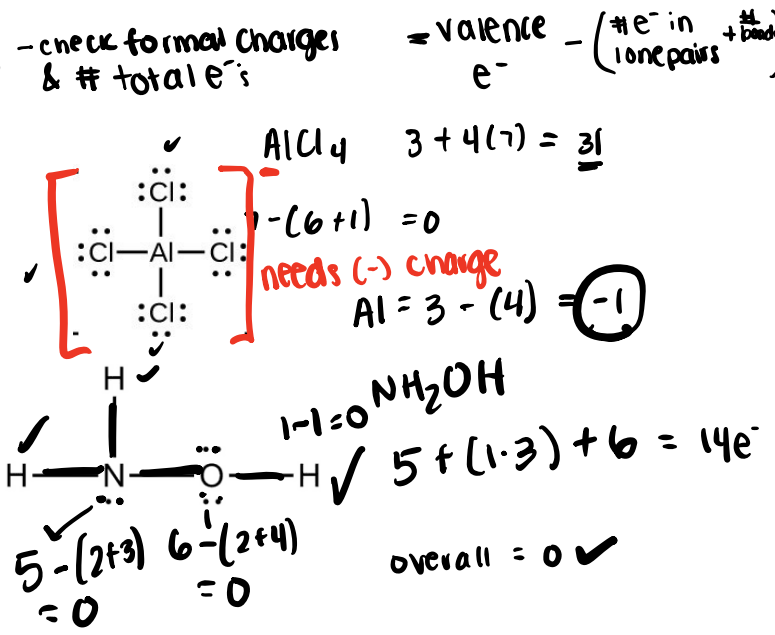 - check formal charges
& # total e⁻'s
= valence e⁻ - (#e⁻ in lone pairs + # bonds
AlCl4 3 + 4(7) = 31
Cl
Cl Al Cl
Cl
-(6+1) = 0
needs (-) charge
Al = 3 - (4) = -1
H
H N O H
1-1=0
NH₂OH
5 + (1·3) + 6 = 14e⁻
5 - (2+3) = 0
6 - (2+4) = 0
overall = 0 ✓